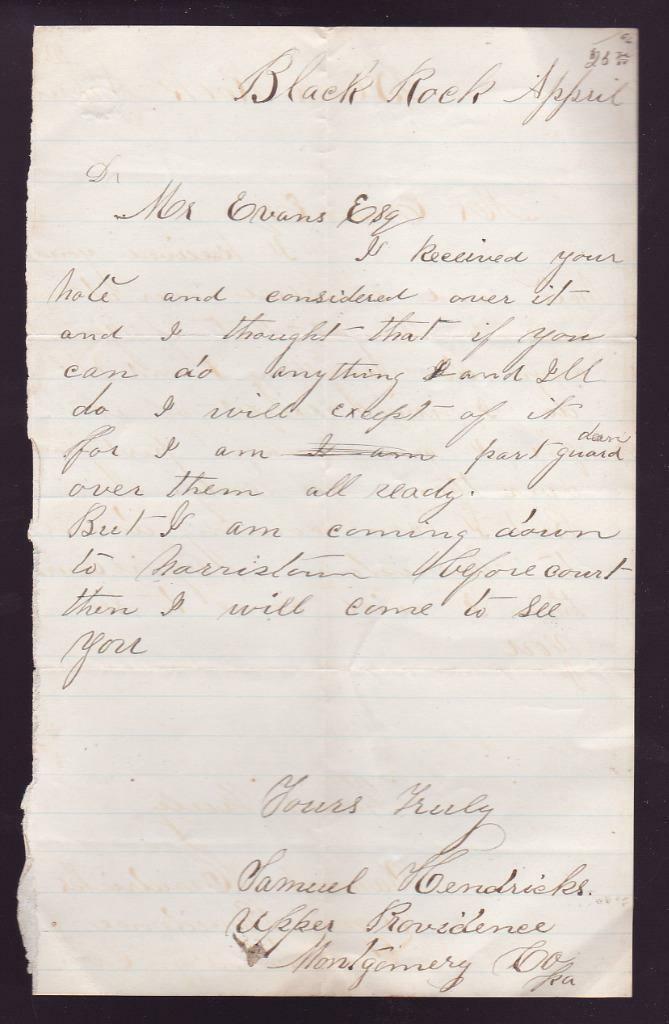 Black Rock April
Dr
Mr Evans Esq
I Received your
note and considered over it
and I thought that if you
can do anything and Ill
do I will except of it
for I am I am part guard
over them all ready.
But I am coming down
to Norristown before court
then I will come to see
you
Yours Truly
Samuel Hendricks.
Upper Providence
Montgomery Co
Pa